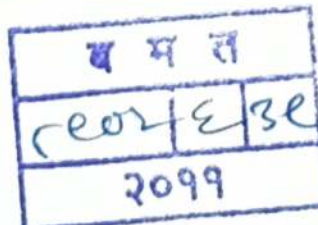 ब म त
८९०२ ६ ३९
२०११